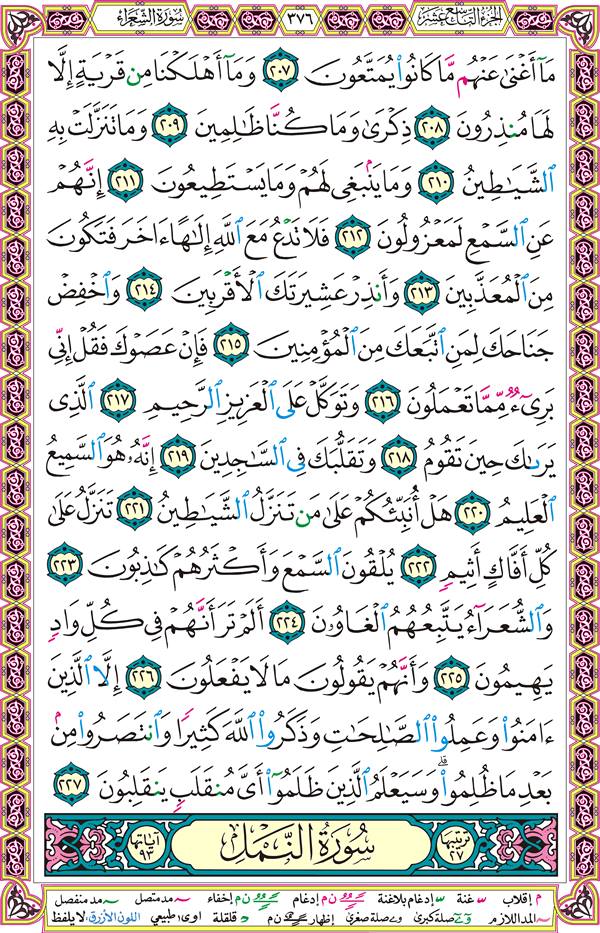 الجزء التاسع عشر ٣٧٦ سورة الشعراء
مَآ أَغْنَىٰ عَنْهُم مَّا كَانُوا۟ يُمَتَّعُونَ ٢٠٧ وَمَآ أَهْلَكْنَا مِن قَرْيَةٍ إِلَّا
لَهَا مُنذِرُونَ ٢٠٨ ذِكْرَىٰ وَمَا كُنَّا ظَٰلِمِينَ ٢٠٩ وَمَا تَنَزَّلَتْ بِهِ
ٱلشَّيَٰطِينُ ٢١٠ وَمَا يَنۢبَغِى لَهُمْ وَمَا يَسْتَطِيعُونَ ٢١١ إِنَّهُمْ
عَنِ ٱلسَّمْعِ لَمَعْزُولُونَ ٢١٢ فَلَا تَدْعُ مَعَ ٱللَّهِ إِلَٰهًا ءَاخَرَ فَتَكُونَ
مِنَ ٱلْمُعَذَّبِينَ ٢١٣ وَأَنذِرْ عَشِيرَتَكَ ٱلْأَقْرَبِينَ ٢١٤ وَٱخْفِضْ
جَنَاحَكَ لِمَنِ ٱتَّبَعَكَ مِنَ ٱلْمُؤْمِنِينَ ٢١٥ فَإِنْ عَصَوْكَ فَقُلْ إِنِّى
بَرِىٓءٌ مِّمَّا تَعْمَلُونَ ٢١٦ وَتَوَكَّلْ عَلَى ٱلْعَزِيزِ ٱلرَّحِيمِ ٢١٧ ٱلَّذِى
يَرَىٰكَ حِينَ تَقُومُ ٢١٨ وَتَقَلُّبَكَ فِى ٱلسَّٰجِدِينَ ٢١٩ إِنَّهُۥ هُوَ ٱلسَّمِيعُ
ٱلْعَلِيمُ ٢٢٠ هَلْ أُنَبِّئُكُمْ عَلَىٰ مَن تَنَزَّلُ ٱلشَّيَٰطِينُ ٢٢١ تَنَزَّلُ عَلَىٰ
كُلِّ أَفَّاكٍ أَثِيمٍ ٢٢٢ يُلْقُونَ ٱلسَّمْعَ وَأَكْثَرُهُمْ كَٰذِبُونَ ٢٢٣
وَٱلشُّعَرَآءُ يَتَّبِعُهُمُ ٱلْغَاوُۥنَ ٢٢٤ أَلَمْ تَرَ أَنَّهُمْ فِى كُلِّ وَادٍ
يَهِيمُونَ ٢٢٥ وَأَنَّهُمْ يَقُولُونَ مَا لَا يَفْعَلُونَ ٢٢٦ إِلَّا ٱلَّذِينَ
ءَامَنُوا۟ وَعَمِلُوا۟ ٱلصَّٰلِحَٰتِ وَذَكَرُوا۟ ٱللَّهَ كَثِيرًا وَٱنتَصَرُوا۟ مِنۢ
بَعْدِ مَا ظُلِمُوا۟ ۗ وَسَيَعْلَمُ ٱلَّذِينَ ظَلَمُوٓا۟ أَىَّ مُنقَلَبٍ يَنقَلِبُونَ ٢٢٧
ترتيبها ٢٧ سُورَةُ النَّمْلِ آياتها ٩٣
م إقلاب غنة إدغام بلاغنة ن م إدغام ن م إخفاء مد متصل مد منفصل
المد اللازم صلة كبرى صلة صغرى إظهار ن م قلقلة اوى طبيعي اللون الأزرق لا يلفظ